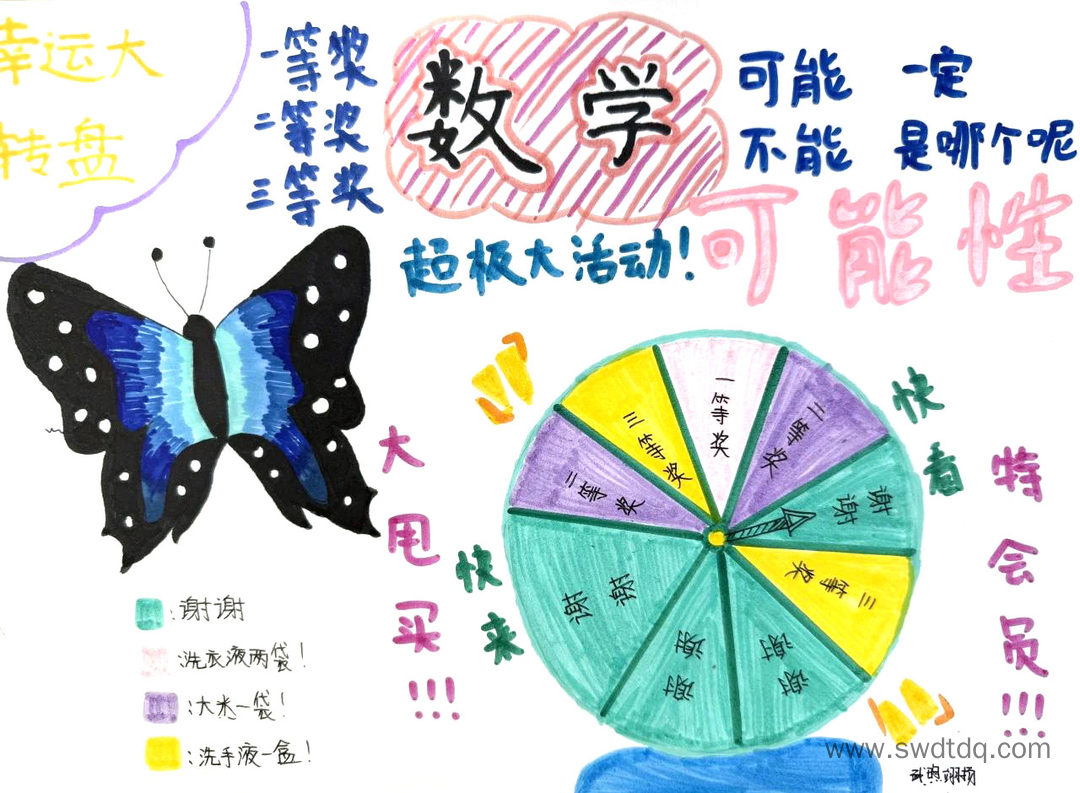 幸运大
转盘
一等奖
二等奖
三等奖
数学
可能 一定
不能 是哪个呢
可能性
超极大活动!
一等奖
二等奖
三等奖
二等奖
谢谢
三等奖
谢谢
谢谢
谢谢
快看
特会员!!!
大甩买!!!
快来
:谢谢
:洗衣液两袋!
:大米一袋!
:洗手液一盒!
www.swdtdq.com